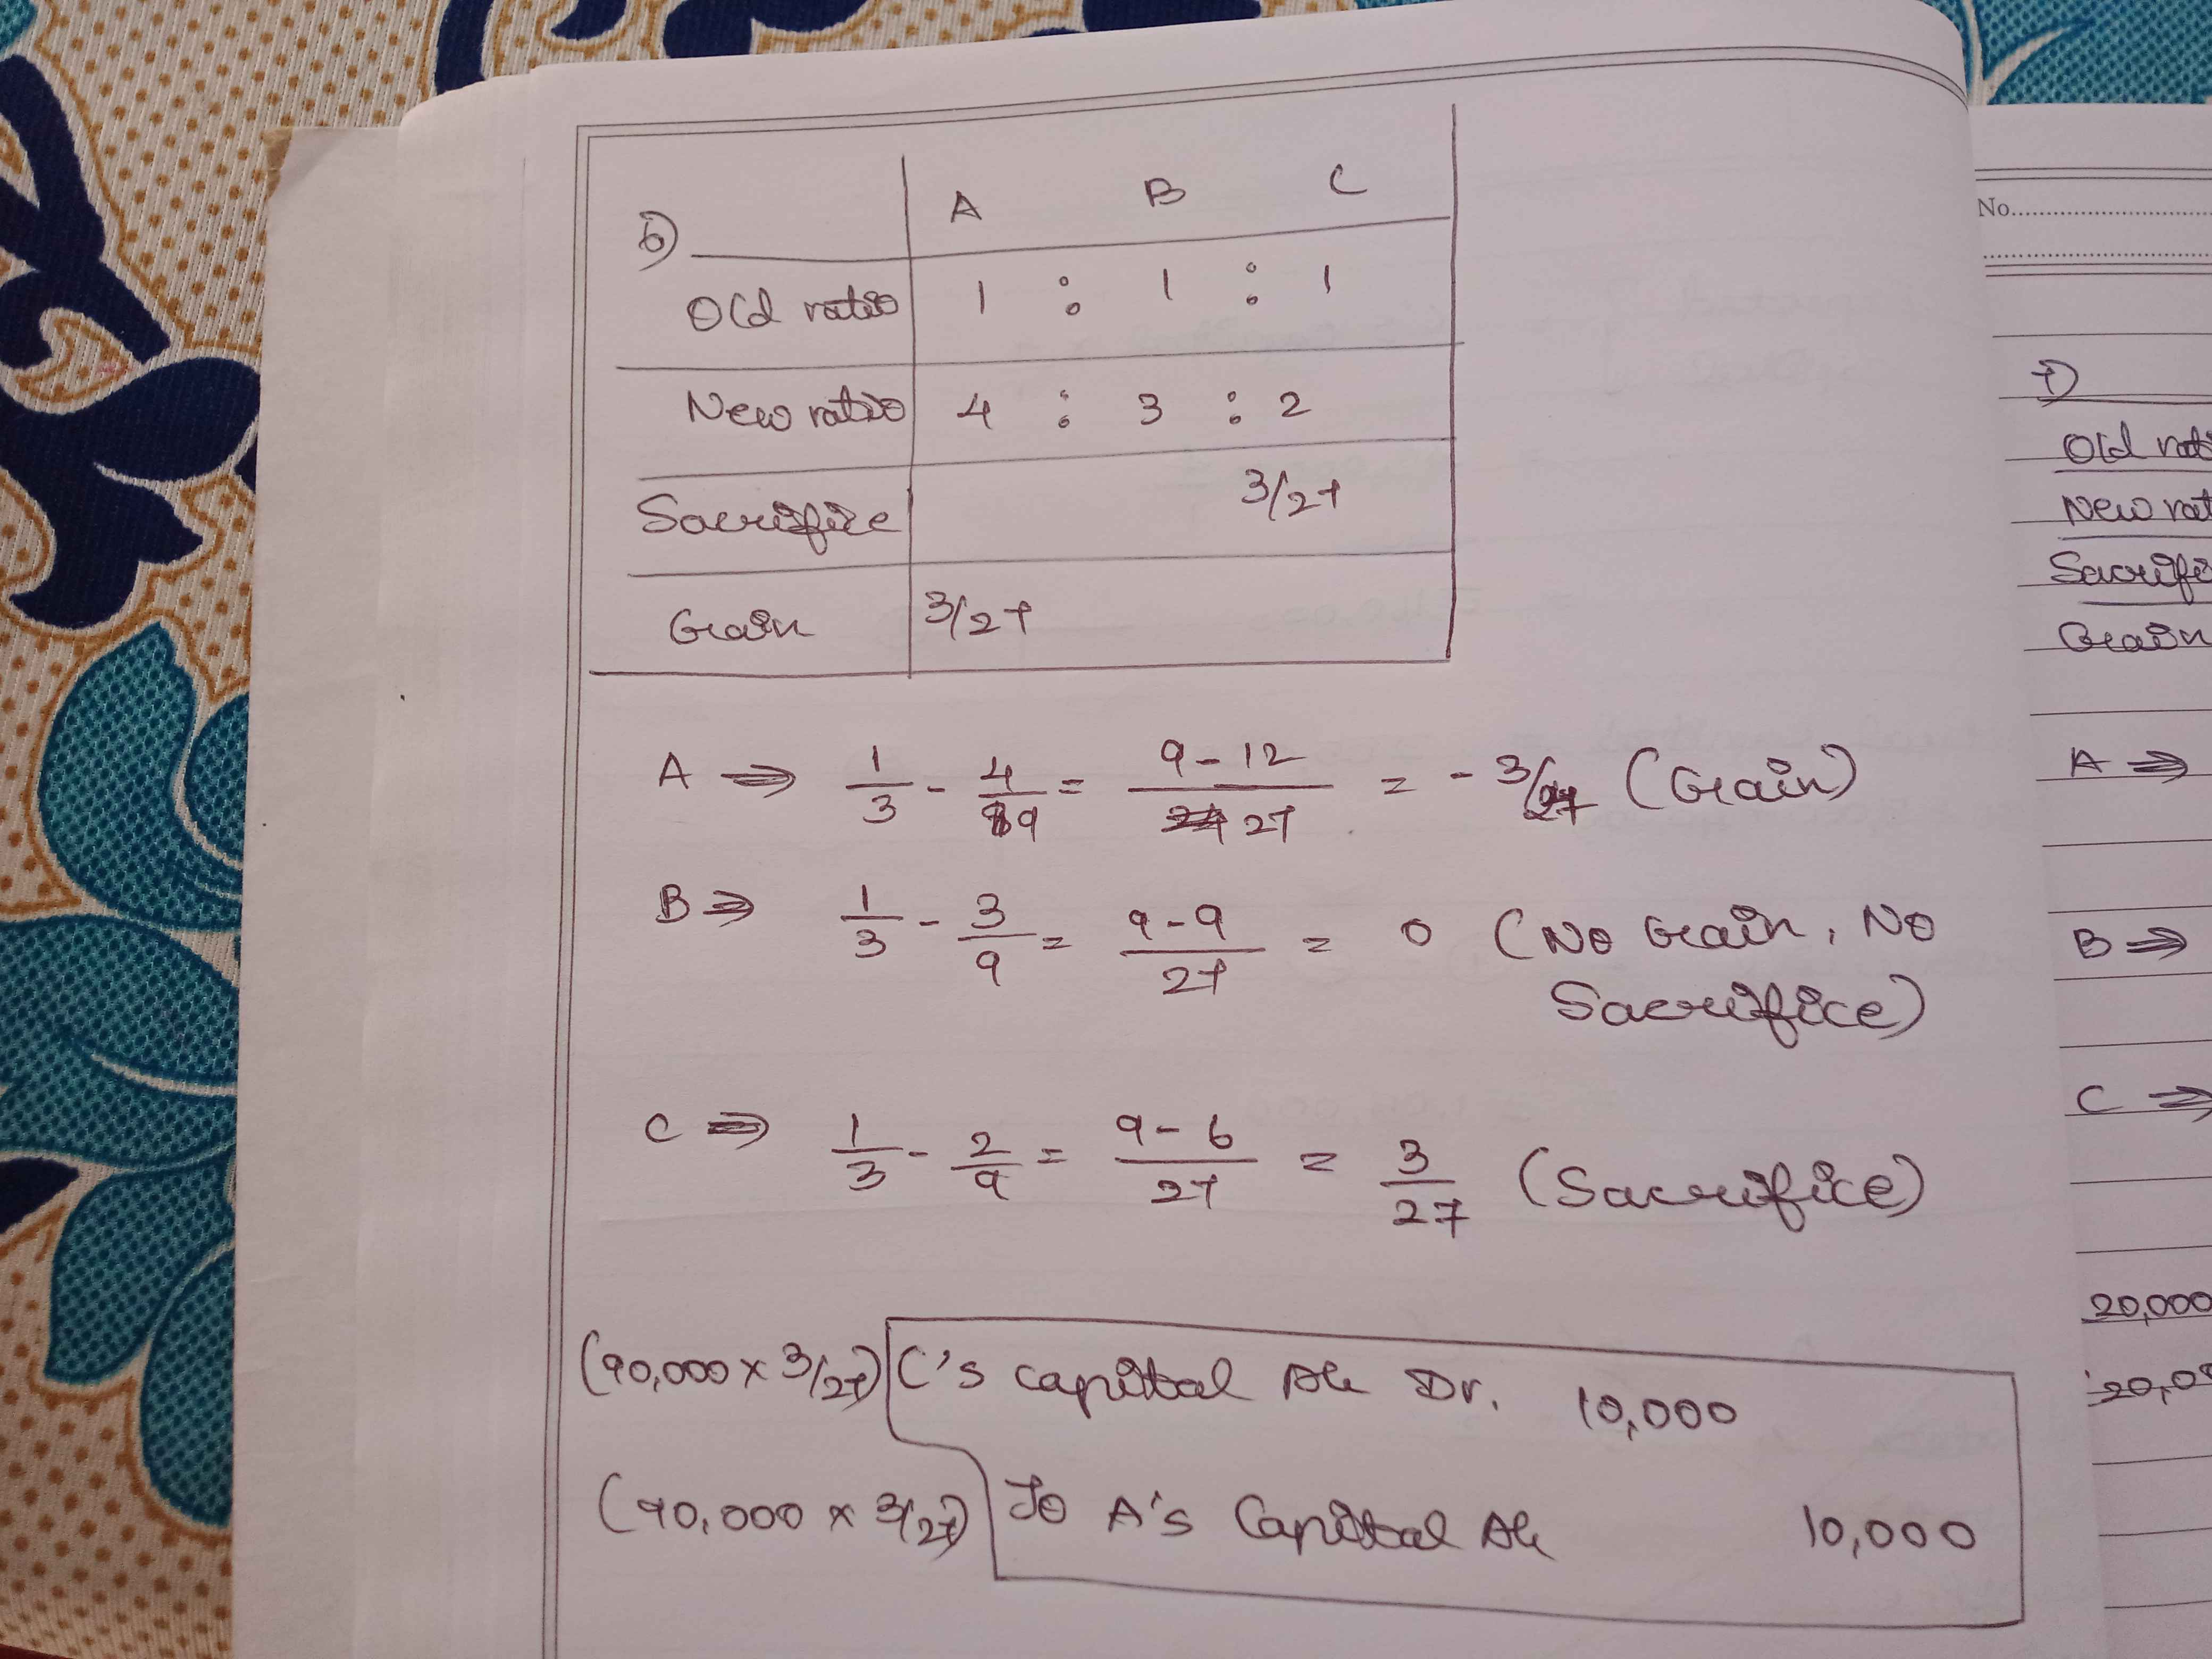 6)
A B C
Old ratio 1 : 1 : 1
New ratio 4 : 3 : 2
Sacrifice 3/27
Gain 3/27
A ⇒ 1/3 - 4/9 = 9-12/27 = -3/27 (Gain)
B ⇒ 1/3 - 3/9 = 9-9/27 = 0 (No Gain, No
Sacrifice)
C ⇒ 1/3 - 2/9 = 9-6/27 = 3/27 (Sacrifice)
(90,000 x 3/27) C's capital A/c Dr. 10,000
(90,000 x 3/27) To A's Capital A/c 10,000
No.
7)
Old
New
A ⇒
B ⇒
C ⇒
Gain
20,000